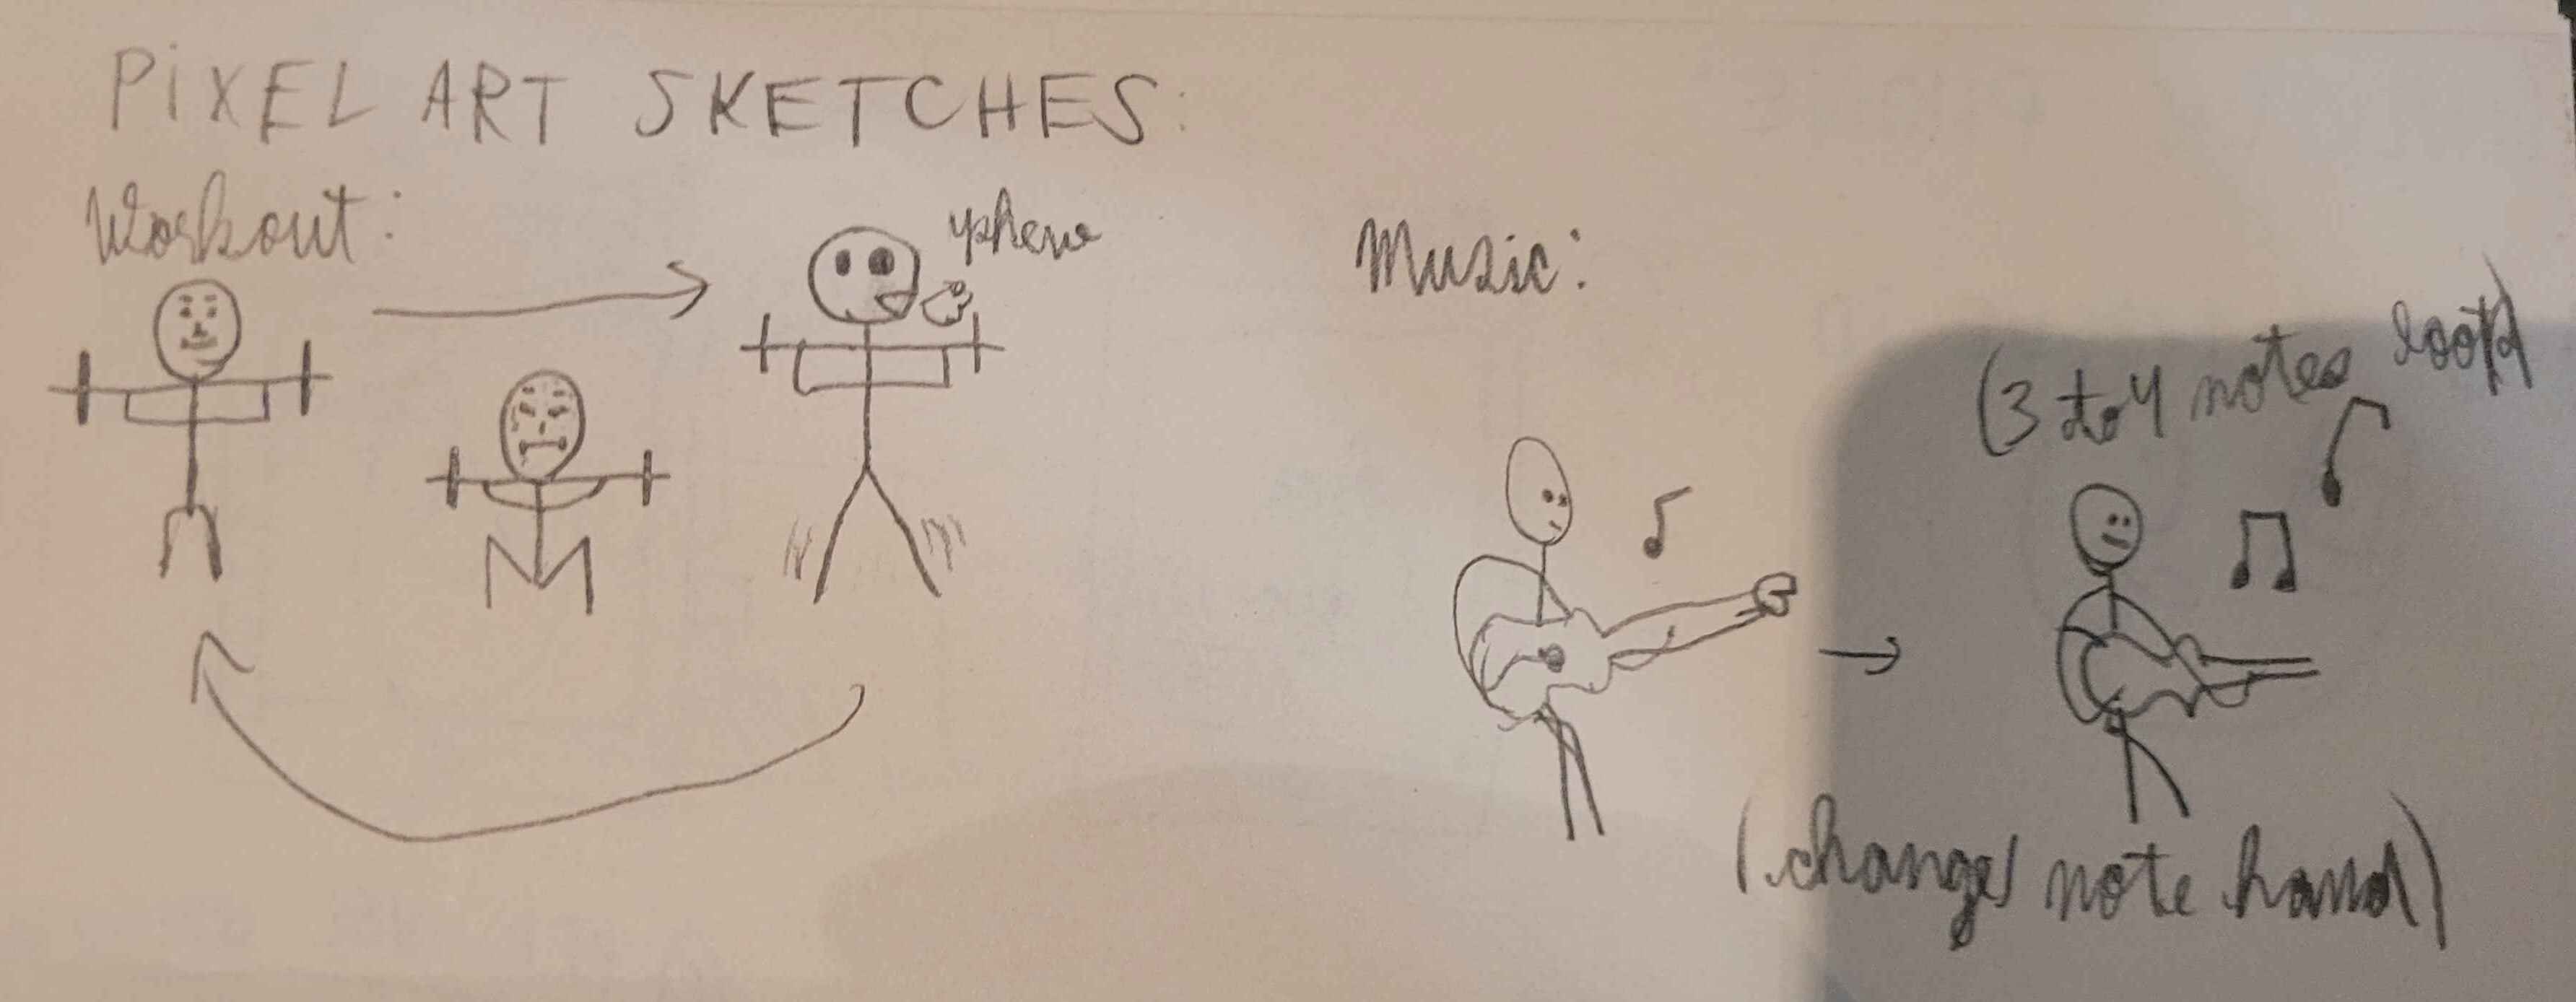 PiXEL ART SKETCHES:
Workout:
phew
Music:
(3 to 4 notes loop)
(change note hand)